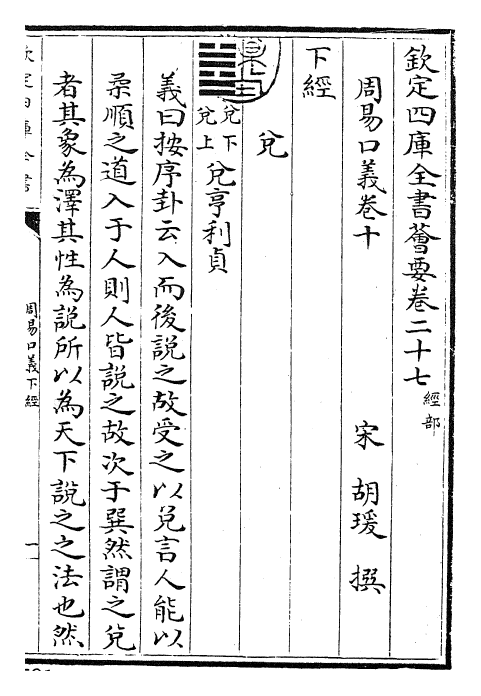 欽定四庫全書薈要卷二十七 經部
周易口義卷十 宋 胡瑗 撰
下經
兌
兌下
兌上 兌亨利貞
義曰按序卦云入而後說之故受之以兌言人能以
柔順之道入于人則人皆說之故次于巽然謂之兌
者其象為澤其性為說所以為天下說之之法也然
欽定四庫全書
周易口義下經
一